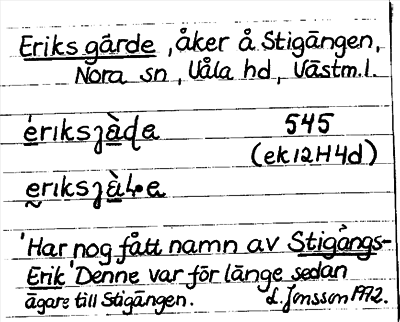 Eriks gärde, åker å Stigängen,
Nora sn, Våla hd, Västm.l.
ériksjàḍa 545
(ek12H4d)
eriksjàLe
'Har nog fått namn av Stigängs-
Erik' Denne var för länge sedan
ägare till Stigängen. L. Jonsson 1972.